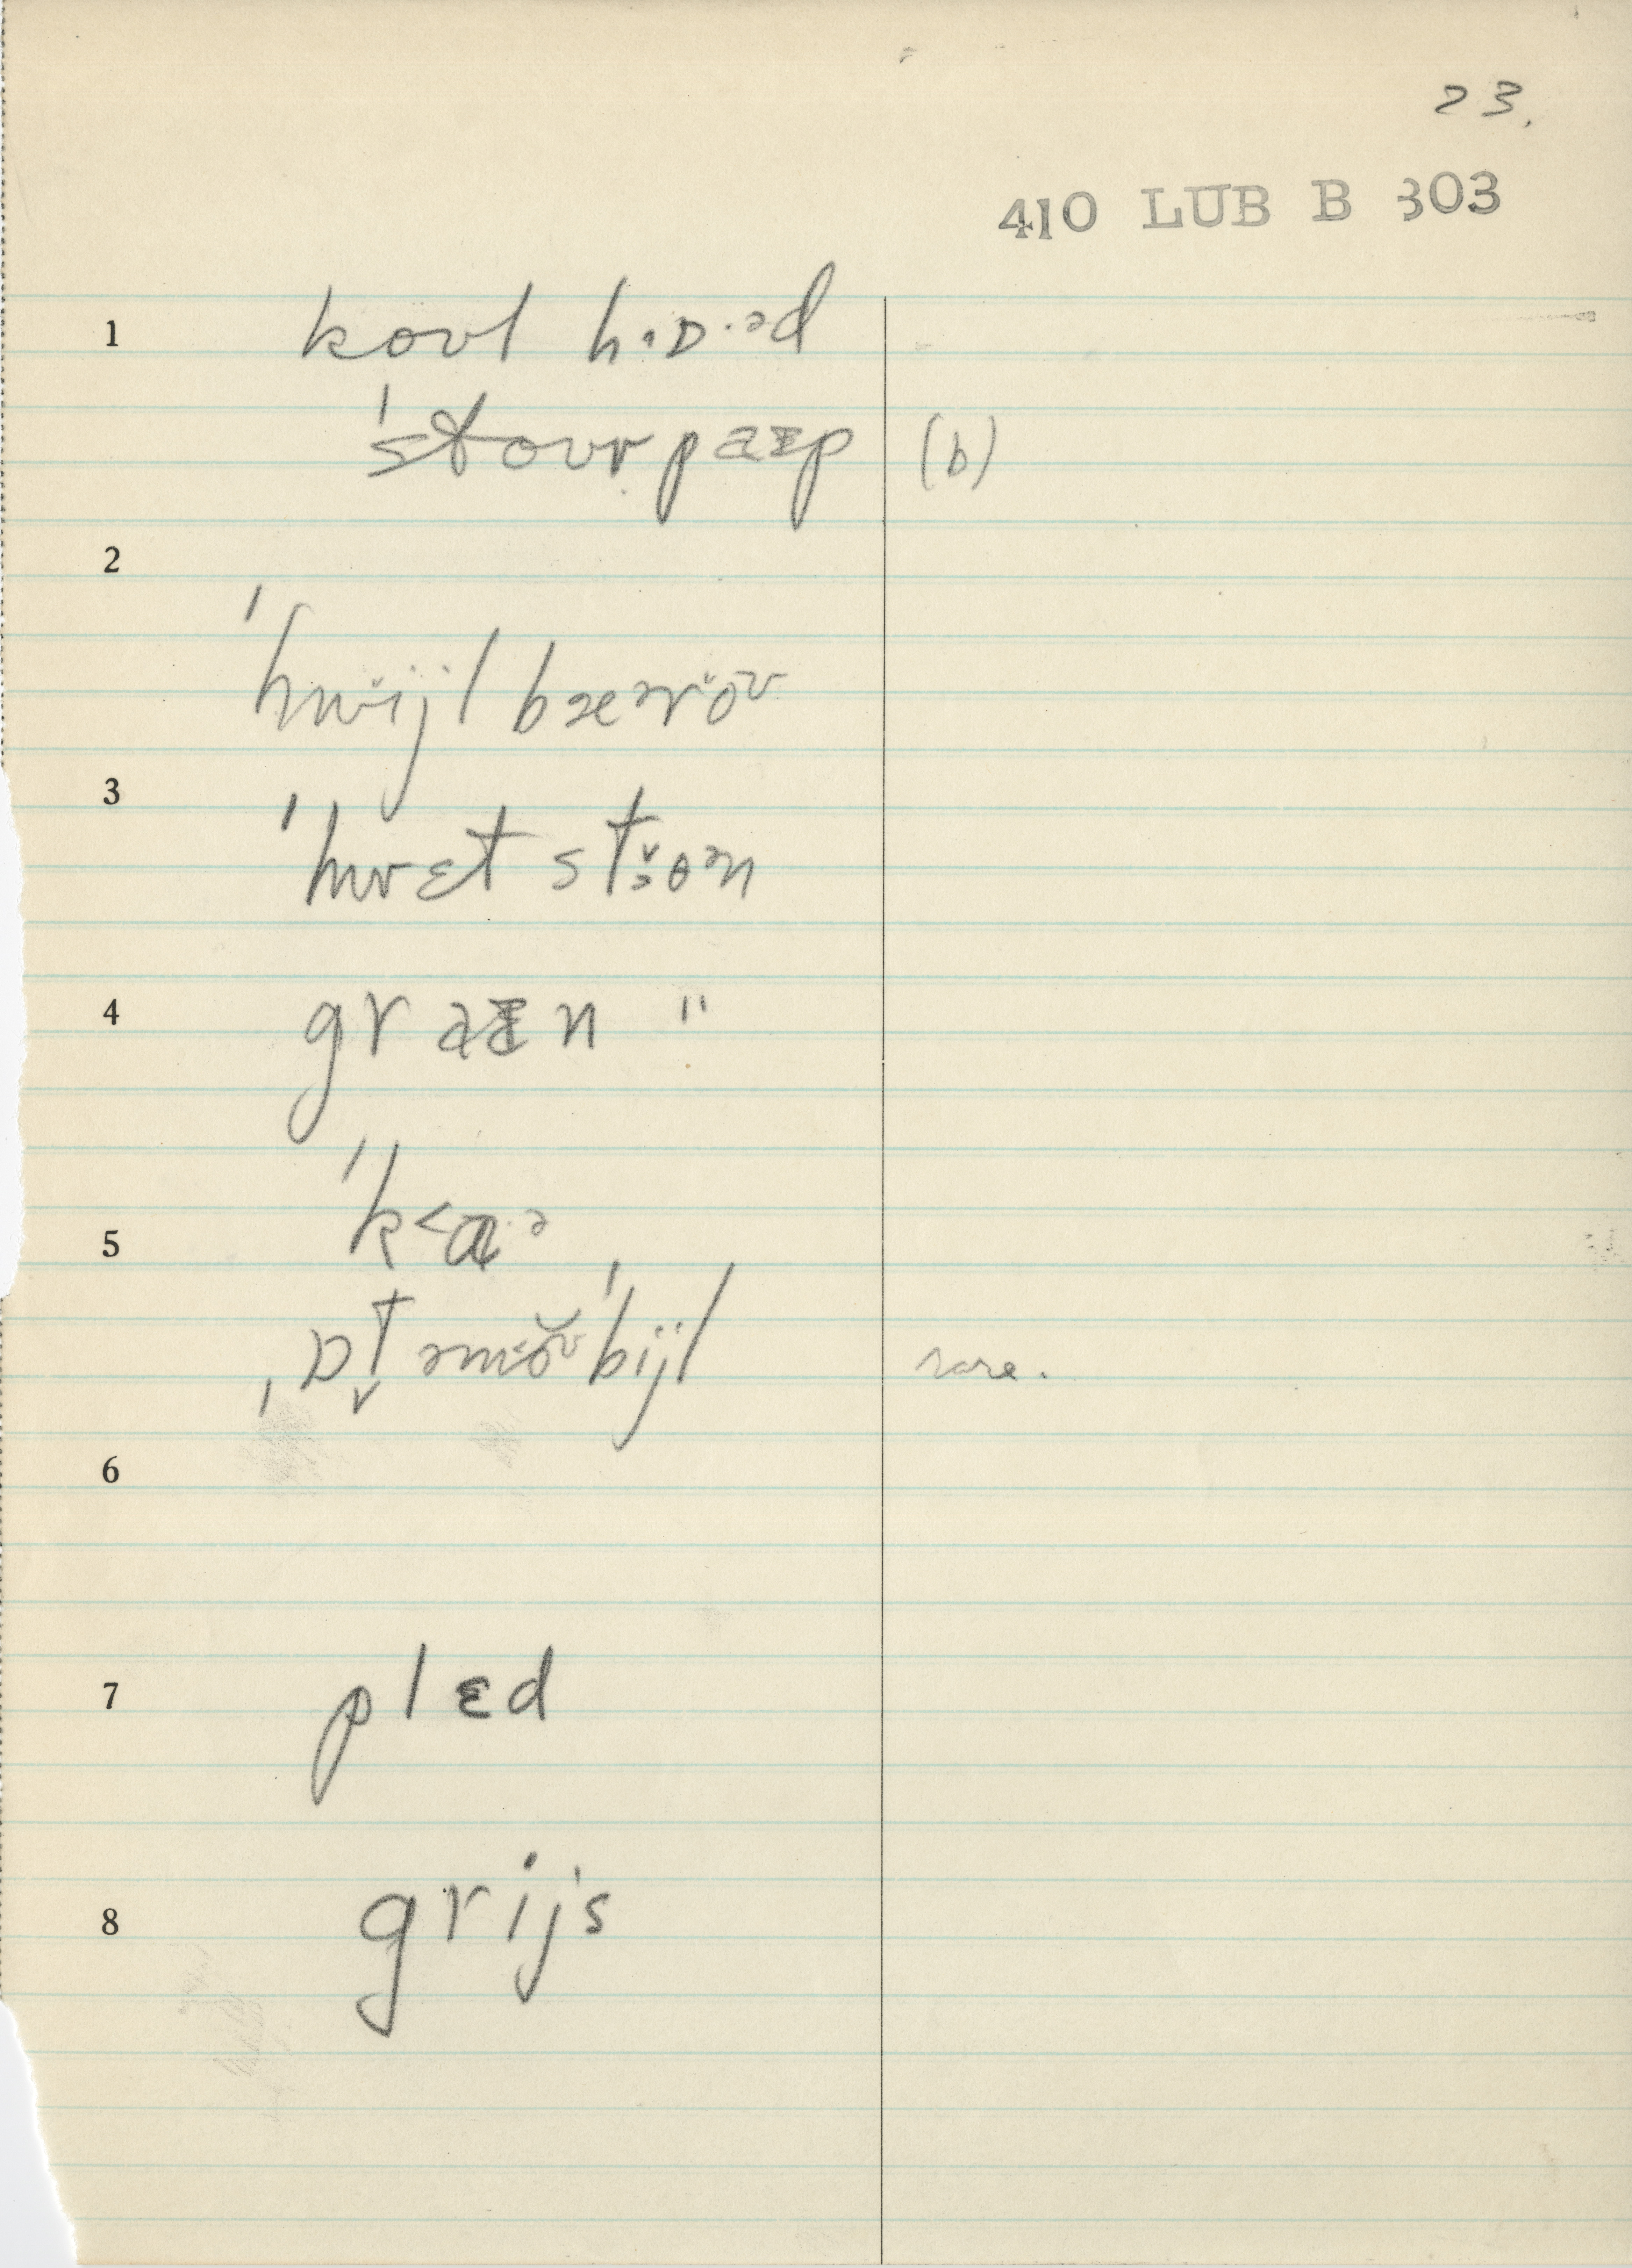 23.
410 LUB B 303
1 koʊl hɒ·əd
ˈstoʊr paɪp (b)
2
ˈhwijl bærəʊ
3
ˈhwɛt stoən
4 graɪn "
ˈk<ɑ·ə
5
ˌɒtəmoʊˈbijl rare.
6
7 plɛd
8 grijs